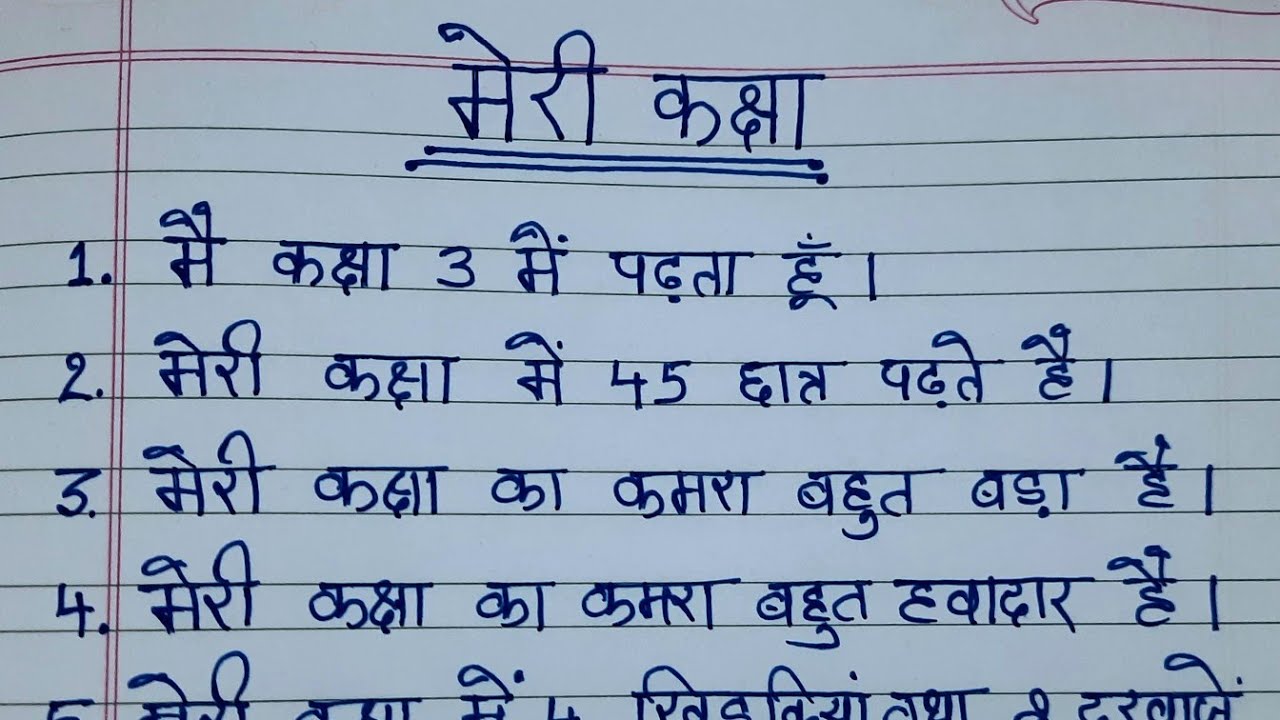 मेरी कक्षा
1. मै कक्षा 3 में पढ़ता हूँ।
2. मेरी कक्षा में 45 छात्र पढ़ते है।
3. मेरी कक्षा का कमरा बहुत बड़ा है।
4. मेरी कक्षा का कमरा बहुत हवादार है।
5. मेरी कक्षा में 4 खिड़कियां तथा 2 दरवाजें